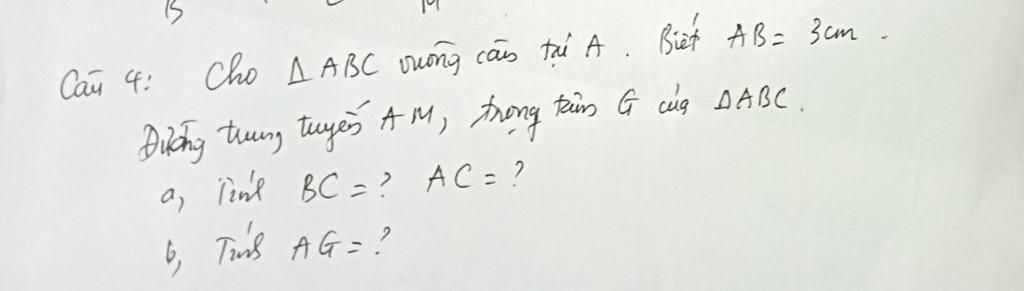 B M
Câu 4: Cho Δ ABC vuông cân tại A. Biết AB = 3cm.
Đường trung tuyến AM, trọng tâm G của ΔABC.
a, Tính BC = ? AC = ?
b, Tính AG = ?